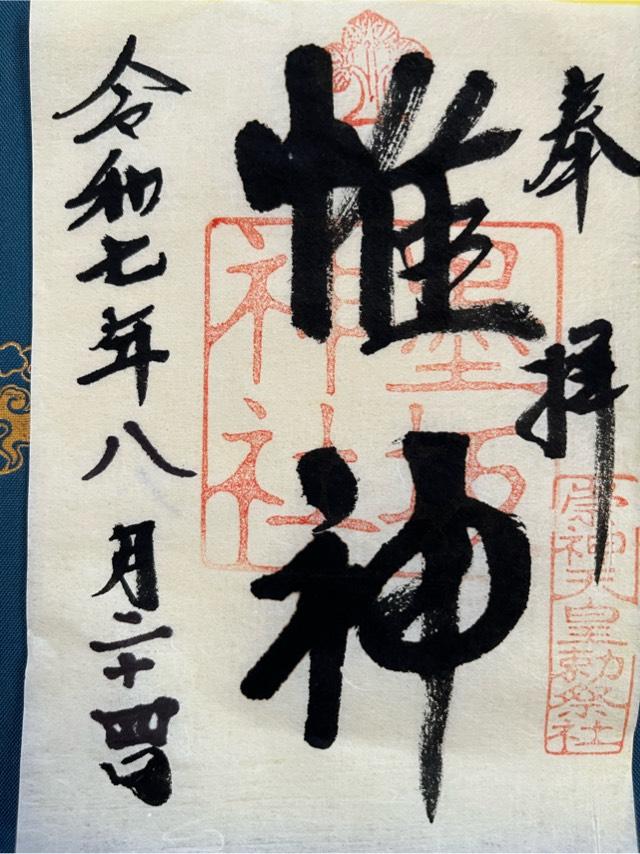 奉拝
崇神天皇勅祭社
惟神
墨坂神社
令和七年八月二十四日